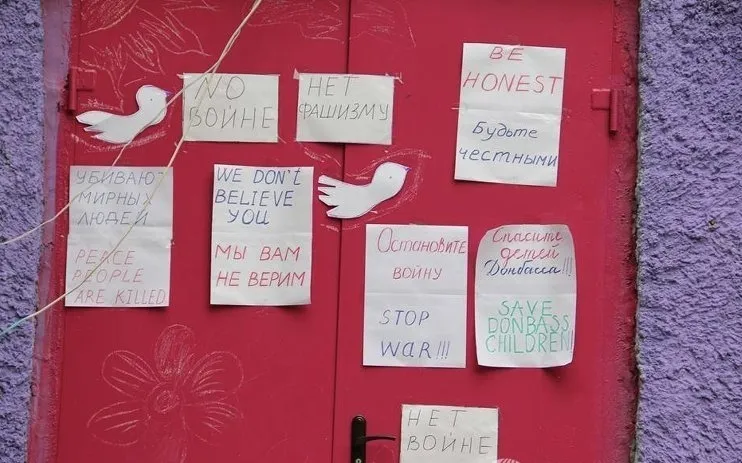 NO
ВОЙНЕ
НЕТ
ФАШИЗМУ
BE
HONEST
Будьте
честными
УБИВАЮТ
МИРНЫХ
ЛЮДЕЙ
PEACE
PEOPLE
ARE KILLED
WE DON'T
BELIEVE
YOU
МЫ ВАМ
НЕ ВЕРИМ
Остановите
войну
STOP
WAR!!!
Спасите
детей
Донбасса!!!
SAVE
DONBASS
CHILDREN!
НЕТ
ВОЙНЕ